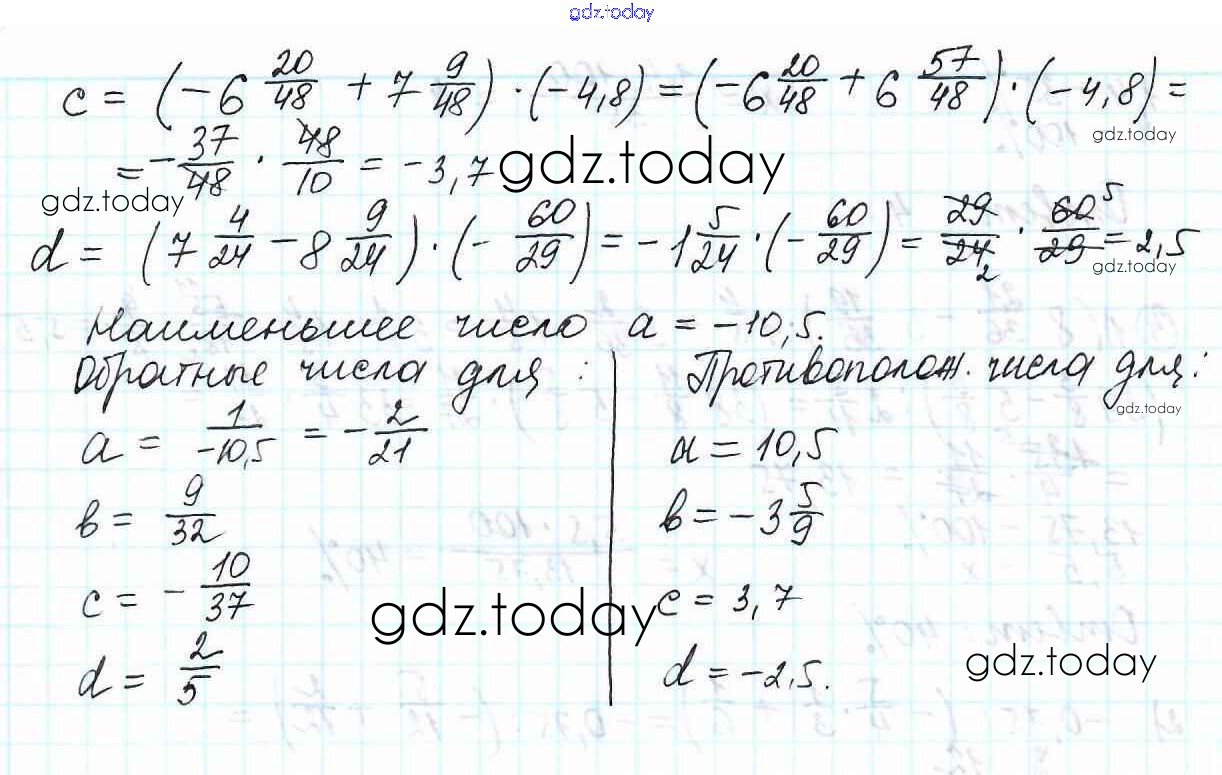 gdz.today
c = (-6 20/48 + 7 9/48) · (-4,8) = (-6 20/48 + 6 57/48) · (-4,8) =
gdz.today
= - 37/48 · 48/10 = -3,7 gdz.today
gdz.today
d = (7 4/24 - 8 9/24) · (- 60/29) = -1 5/24 · (- 60/29) = 29/24 2 · 60 5/29 = 2,5
gdz.today
Наименьшее число a = -10,5.
Обратные числа для :
a = 1/-10,5 = - 2/21
в = 9/32
c = - 10/37
d = 2/5
Противополож. числа для:
gdz.today
a = 10,5
в = -3 5/9
c = 3,7
d = -2,5.
gdz.today
gdz.today